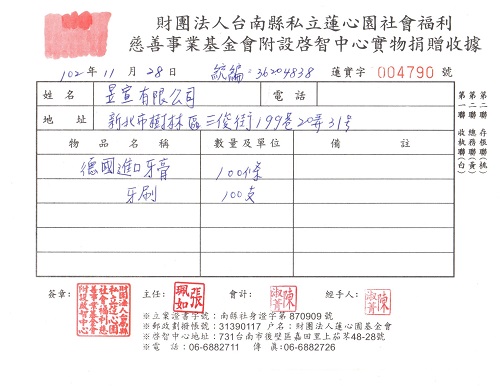 財團法人台南縣私立蓮心園社會福利
慈善事業基金會附設啓智中心實物捐贈收據
102年11月28日 統編:36204838 蓮實字 004790 號
姓名 昱宣有限公司 電話
地址 新北市樹林區三俊街199巷20弄31号
物品名稱 數量及單位 備註
德國進口牙膏 100條
牙刷 100支
第一聯 收執聯(白)
第二聯 總務聯(黃)
第三聯 存根聯(桃)
簽章: 財團法人台南縣私立蓮心園社會福利慈善事業基金會附設啓智中心 主任: 張珮如 會計: 陳淑菁 經手人: 陳淑菁
※立案證書字號:南縣社身證字第 870909 號
※郵政劃撥帳號:31390117 户名:財團法人蓮心園基金會
※啓智中心地址:731台南市後壁區嘉田里上茄苳48-28號
※電 話:06-6882711 傳 真:06-6882726